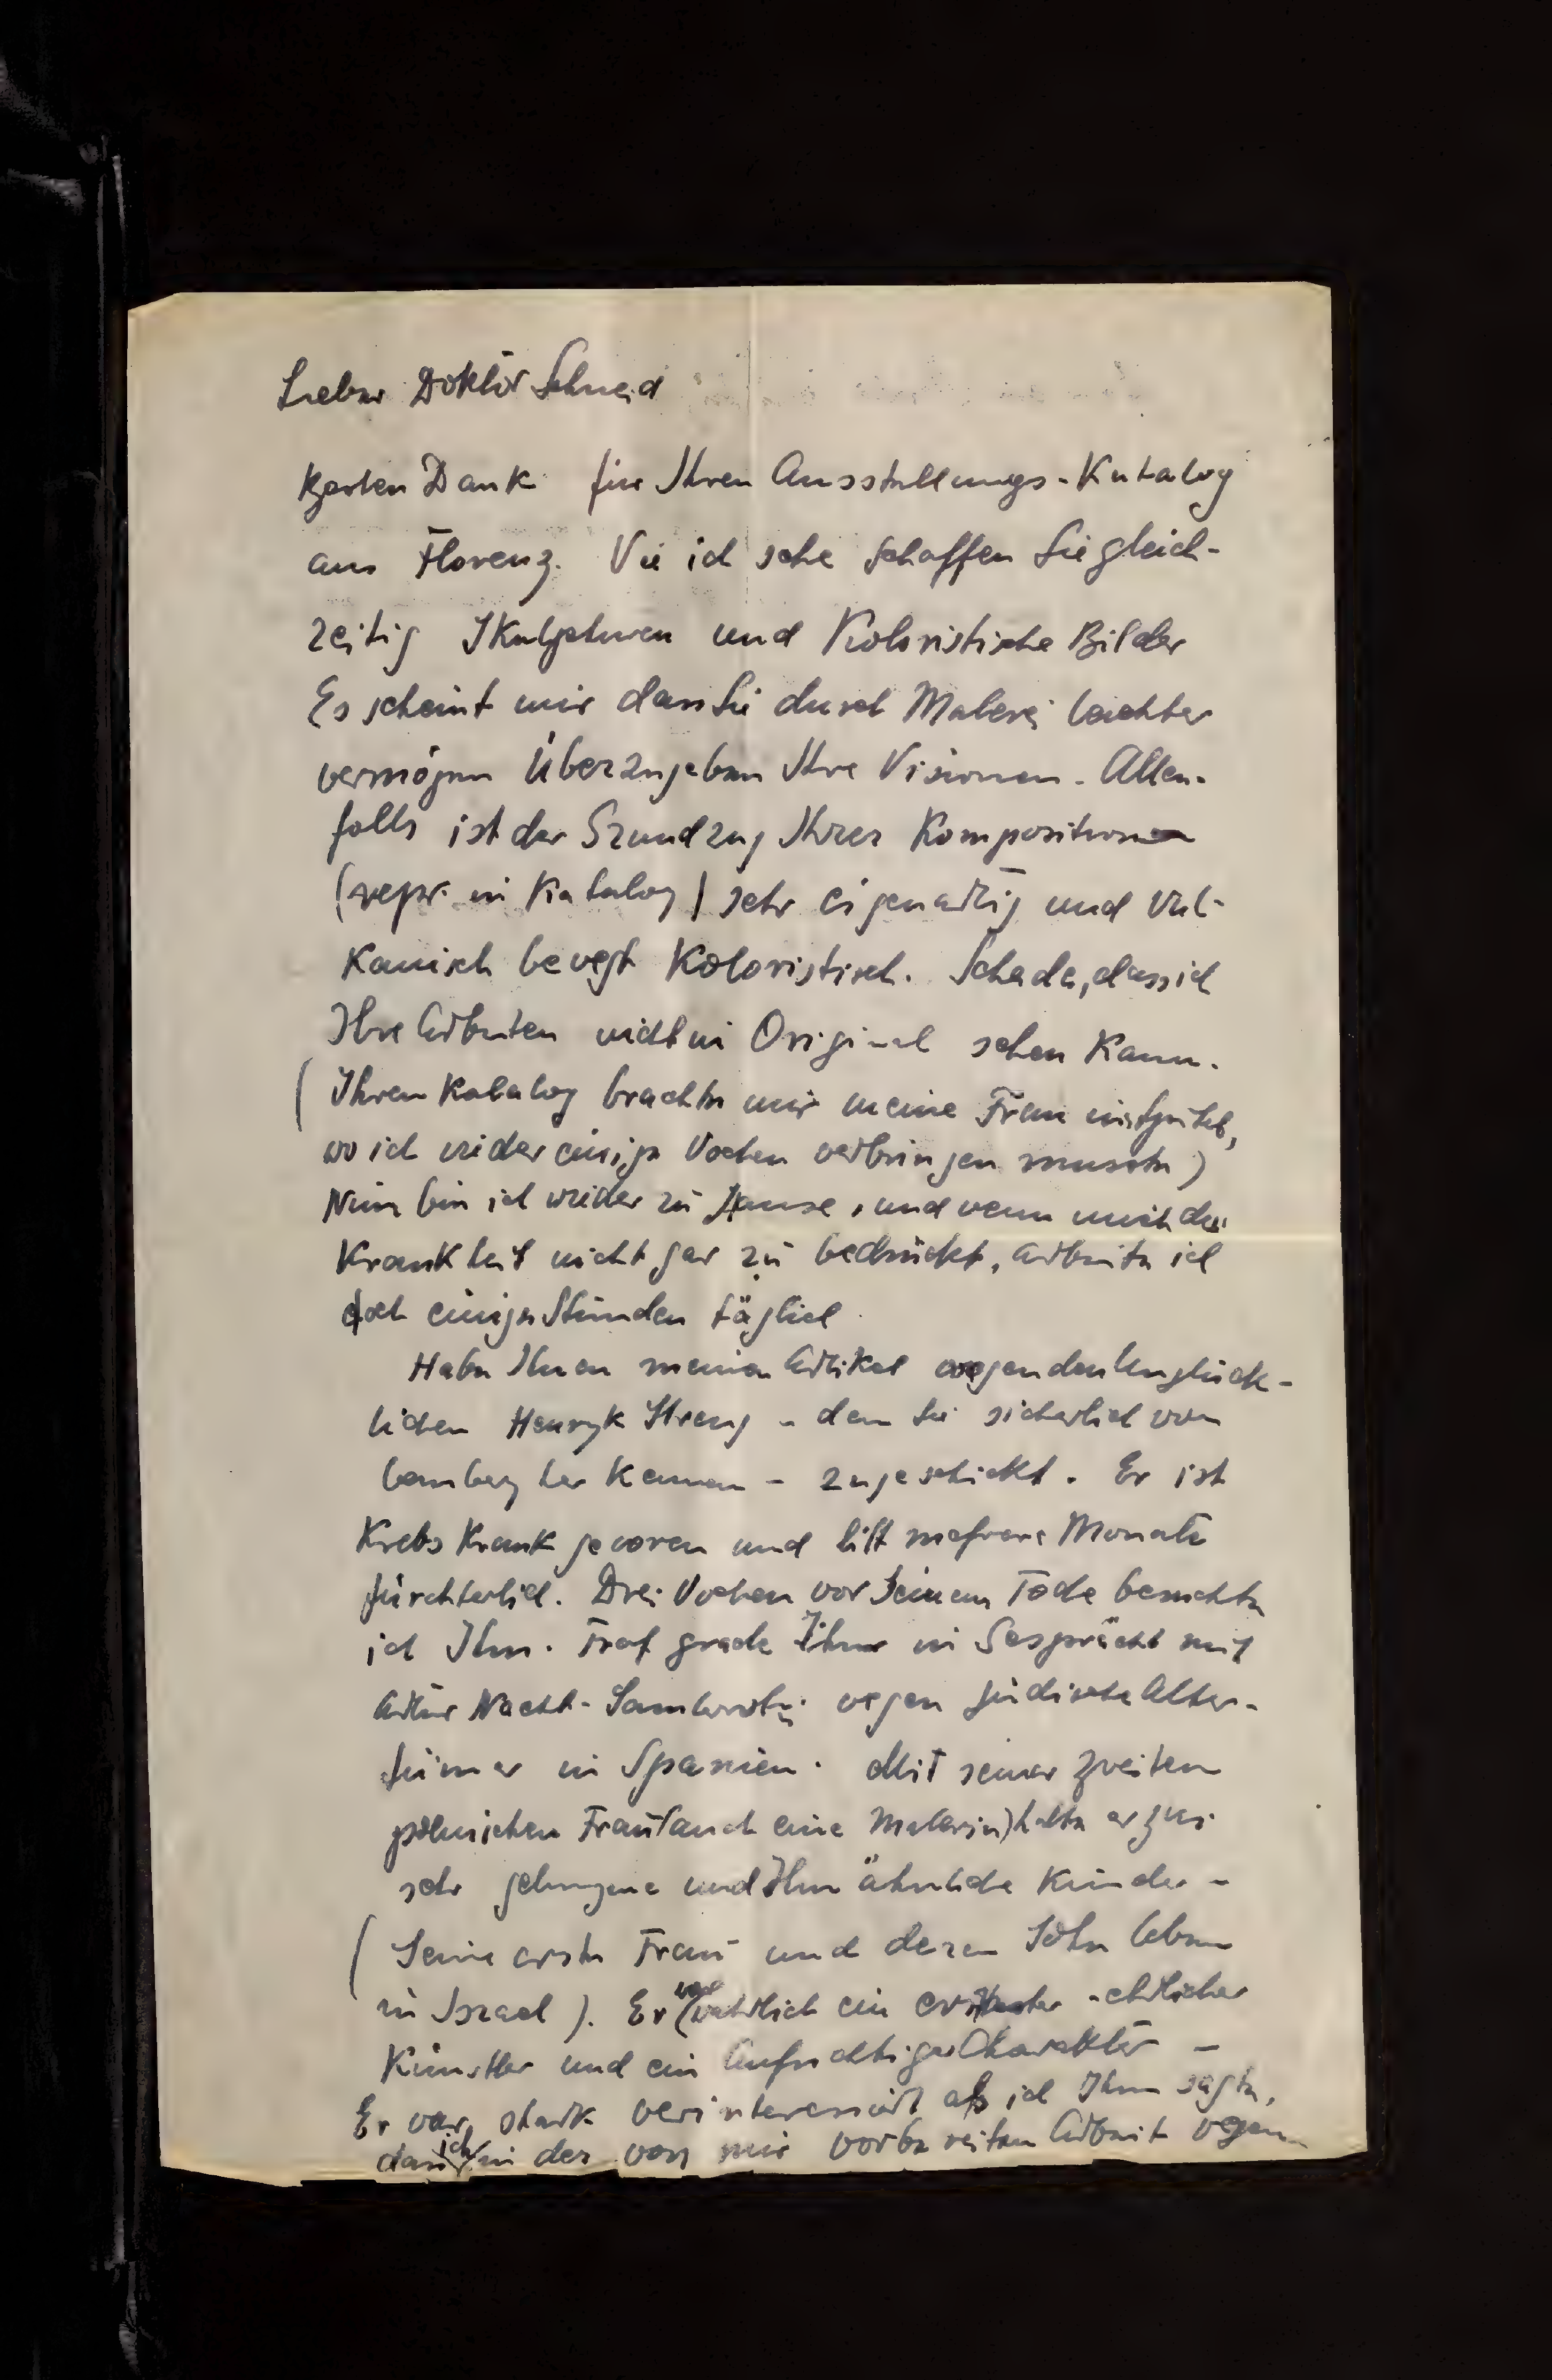 Lieber Doktor Schneid
Besten Dank für Ihren Ausstellungs-Katalog
aus Florenz. Vie ich sehe schaffen Sie gleich-
zeitig Skulpturen und Koloristische Bilder
Es scheint mir dass Sie durch Malerei leichter
vermögen Überzugeben Ihre Visionen. Allen-
falls ist der Grundzug Ihrer Kompositionen
(repr. in Katalog) sehr eigenartig und Vul-
kanisch bevegt Koloristisch. Schade, dass ich
Ihre Arbeiten nicht in Original sehen kann.
(Ihren Katalog brachte mir meine Frau ins Spital,
wo ich vider einige Vochen verbringen musste)
Nun bin ich vieder zu Hause, und venn mich die
Krankheit nicht gar zu bedrückt, arbeite ich
doch einige Stunden täglich
Habe Ihnen meinen Artikel wegen den Unglück-
lichen Henryk Streng - den Sie sicherlich von
Lemberg her kennen - zugeschickt. Er ist
Krebskrank gevoren und litt mehrere Monate
fürchterlich. Drei Vochen vor Seinem Tode besuchte
ich Ihn. Traf grade Ihn in Gespräche mit
Artur Nacht-Samborski vegen jüdische Alter-
tümer in Spanien. Mit seiner zveiten
polnischen Frau (auch eine Malerin) hatte er zvei
sehr gelungene und Ihm ähnliche Kinder -
(Seine erste Frau und deren Sohn leben
in Israel). Er war wahrlich ein - ehrlicher
Künstler und ein Aufrichtiger Charakter -
Er var stark verinteressiert als ich Ihm sagte,
dass ich in der von mir vorbereiten Arbeit vegen